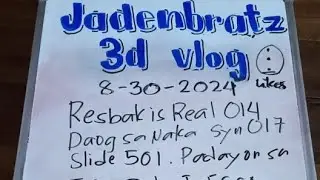 Jadenbratz
3d vlog
Likes
8-30-2024
Resbak is Real 014
Daog sa Naka Syn 017
Slide 501. Padayon sa